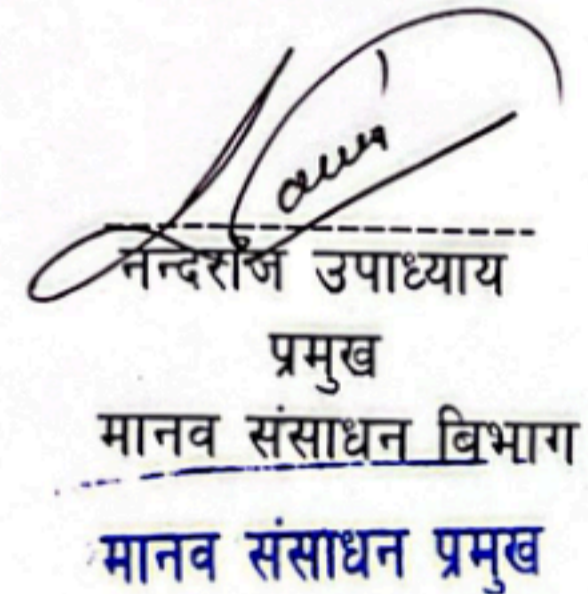 नन्दराज उपाध्याय
प्रमुख
मानव संसाधन बिभाग
मानव संसाधन प्रमुख